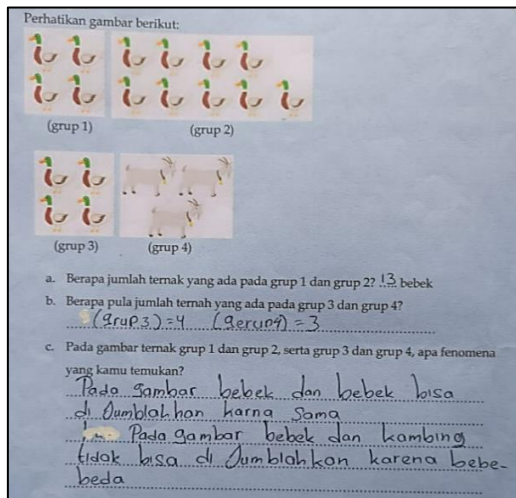 Perhatikan gambar berikut:
(grup 1)
(grup 2)
(grup 3)
(grup 4)
a. Berapa jumlah ternak yang ada pada grup 1 dan grup 2? 13 bebek
b. Berapa pula jumlah ternah yang ada pada grup 3 dan grup 4?
(grup 3) = 4 (gerup 4) = 3
c. Pada gambar ternak grup 1 dan grup 2, serta grup 3 dan grup 4, apa fenomena
yang kamu temukan?
Pada gambar bebek dan bebek bisa
di Jumblah han karna sama
Pada gambar bebek dan kambing
tidak bisa di Jumblah kan karena bebe-
beda